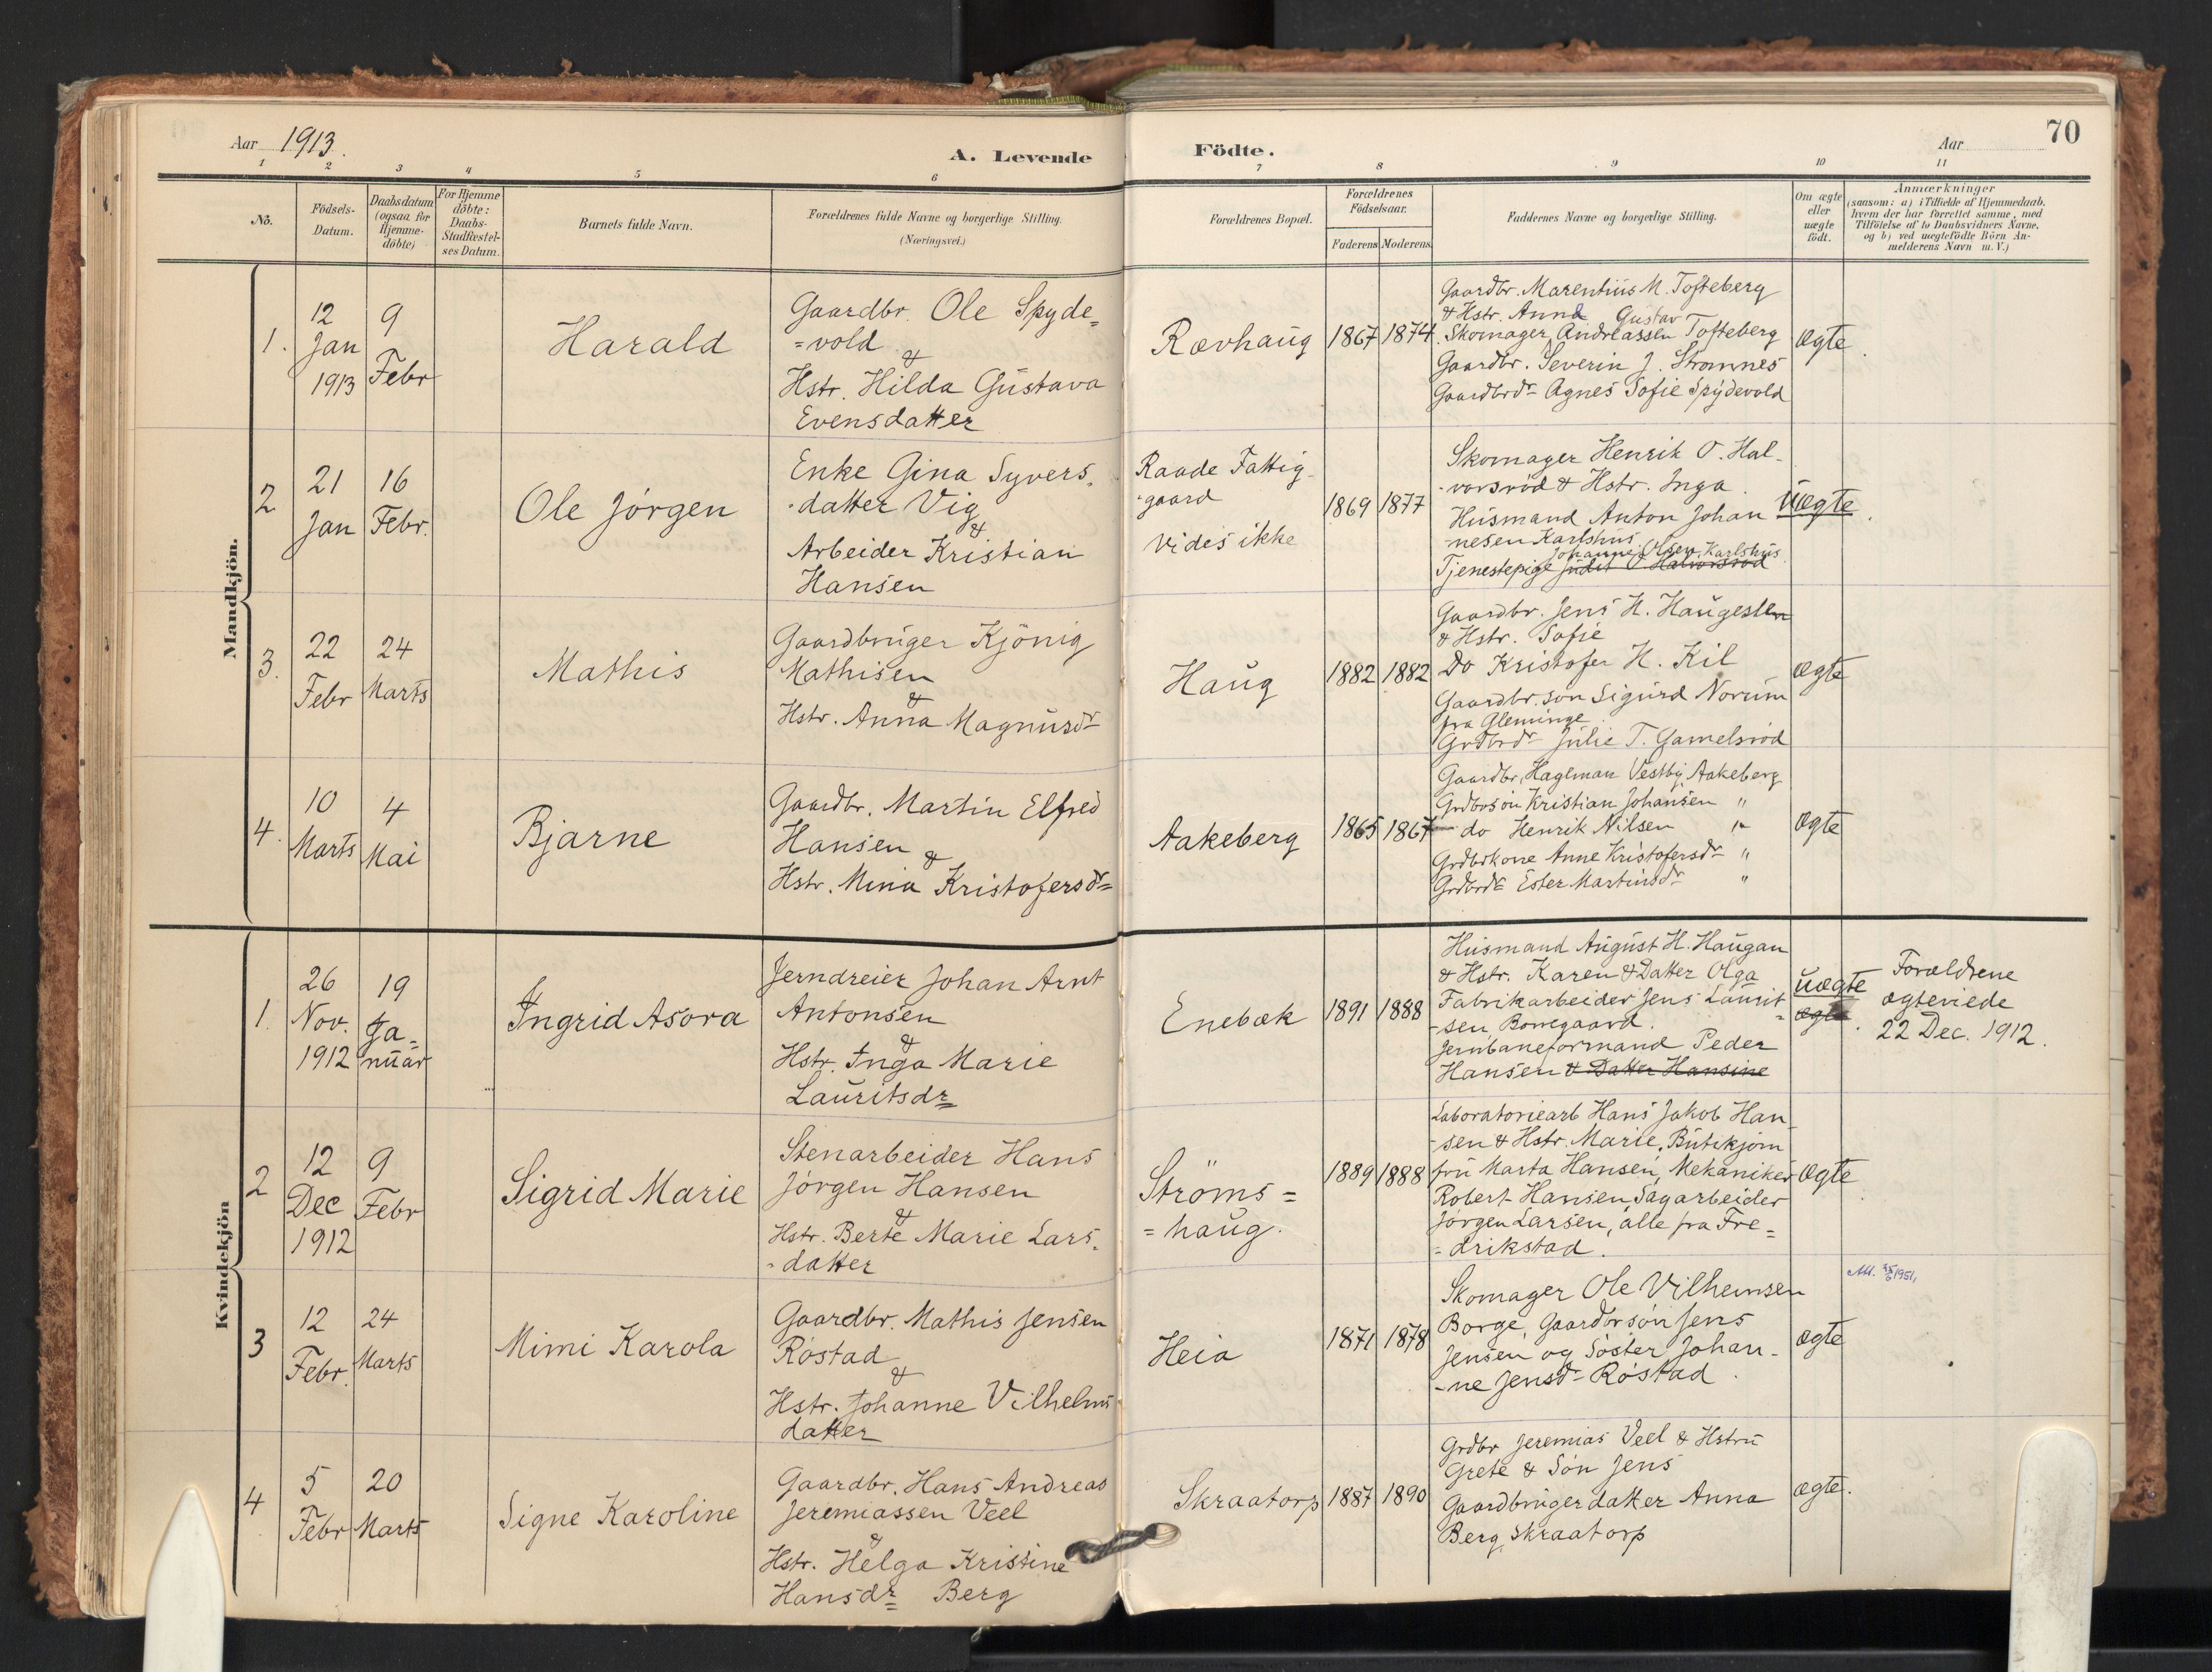 Aar 1913.
A. Levende
Födte.
Aar
70
1 2 3 4 5 6 7 8 9 10 11
No.
Födsels-
Datum.
Daabsdatum
(ogsaa for
Hjemme-
döbte)
For Hjemme
döbte:
Daabs-
Stadfæstel-
ses Datum.
Barnets fulde Navn.
Forældrenes fulde Navne og borgerlige Stilling.
(Næringsvei.)
Forældrenes Bopæl.
Forældrenes
Födselsaar.
Faderens Moderens
Faddernes Navne og borgerlige Stilling.
Om ægte
eller
uægte
födt.
Anmærkninger
(saasom: a) i Tilfælde af Hjemmedaab,
hvem der har forrettet samme, med
Tilföielse af to Daabsvidners Navne,
og b) ved uægtefödte Börn An-
melderens Navn m. V.)
Mandkjön.
1.
12
Jan
1913
9
Febr
Harald
Gaardbr. Ole Spyde=
=vold
&
Hstr. Hilda Gustava
Evensdatter
Rævhaug
1867
1874
Gaardbr. Marentius M. Tofteberg
& Hstr. Anna
Gustav
Skomager Andreassen Tofteberg
Gaardbr. Severin J. Strømnes
Gaardbrdr Agnes Sofie Spydevold
ægte
2
21
Jan
16
Febr.
Ole Jørgen
Enke Gina Syvers-
-datter Vig
&
Arbeider Kristian
Hansen
Raade Fattig-
-gaard
Vides ikke
1869
1877
Skomager Henrik O. Hal-
-vorsrød & Hstr. Inga
Husmand Anton Johan
nesen Karlshus
Johanne Olsen, Karlshus
Tjenestepige Judit O Halvorsrød
Uægte
3.
22
Febr
24
Marts
Mathis
Gaardbruger Kjønig
Mathisen
&
Hstr. Anna Magnusdr
Haug
1882
1882
Gaardbr. Jens H. Haugesten
& Hstr. Sofie
Do Kristofer H. Kil
Gaardbr.søn Sigurd Norum
fra Gleminge
Grdbrdr Julie T. Gamelsrød
ægte
4.
10
Marts
4
Mai
Bjarne
Gaardbr. Martin Elfred
Hansen
&
Hstr. Mina Kristofersdr
Aakeberg
1865
1867
Gaardbr, Haglman Vestby, Aakeberg
Grdbrsøn Kristian Johansen "
do Henrik Nilsen "
Grdbrkone Anne Kristofersdr "
Grdbrdr Ester Martinsdr "
ægte
Kvindekjön
1.
26
Nov.
1912
19
Ja-
nuar
Ingrid Asora
Jerndreier Johan Arnt
Antonsen
&
Hstr. Inga Marie
Lauritsdr
Enebæk
1891
1888
Husmand August H. Haugan
& Hstr. Karen & Datter Olga
Fabrikarbeider Jens Laurit-
-sen, Borregaard.
Jernbaneformand Peder
Hansen & Datter Hansine
Uægte
ægte
Forældrene
ægteviede
22 Dec. 1912.
2
12
Dec
1912
9
Febr
Sigrid Marie
Stenarbeider Hans
Jørgen Hansen
&
Hstr. Berte Marie Lars-
-datter
Ströms=
=haug.
1889
1888
Laboratoriearb Hans Jakob Han-
-sen & Hstr. Marie, Butikjom
fru Marta Hansen, Mekaniker
Robert Hansen, Sagarbeider
Jørgen Larsen, alle fra Fre=
=drikstad.
ægte
3
12
Febr.
24
Marts
Mimi Karola
Gaardbr. Mathis Jensen
Røstad
&
Hstr. Johanne Vilhelms
datter
Heia
1871
1878
Skomager Ole Vilhemsen
Borge, Gaardbrsøn Jens
Jensen og Søster Johan-
-ne Jensdr Røstad.
ægte
1951.
4
5
Febr
20
Marts
Signe Karoline
Gaardbr. Hans Andreas
Jeremiassen Veel
&
Hstr. Helga Kristine
Hansdr Berg
Skraatorp
1887
1890
Grdbr Jeremias Veel & Hstru
Grete & Søn Jens
Gaardbrugerdatter Anna
Berg, Skraatorp
ægte.